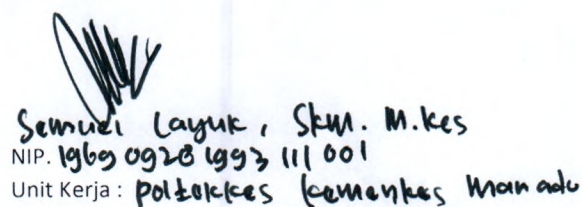 Semuel Layuk, SKM. M.Kes
NIP. 19690928 1993 111 001
Unit Kerja : poltekkes kemenkes Manado